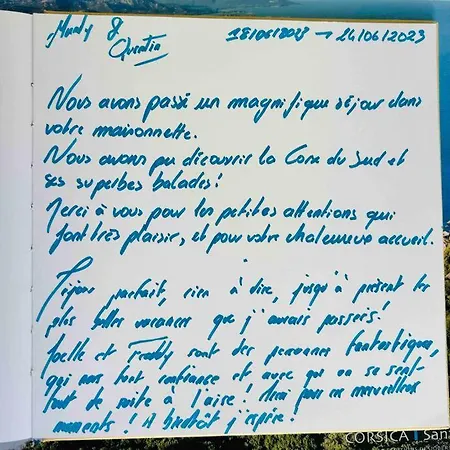 & Quentin
18/06/2023 → 24/06/2023
Nous avons passé un magnifique séjour dans
votre maisonnette.
Nous avons pu découvrir la Corse du Sud et
ses superbes balades!
Merci à vous pour les petites attentions qui
font très plaisir, et pour votre chaleureux accueil.
Séjour parfait, rien à dire, jusqu'à présent les
plus belles vacances que j'aurais passées!
Joelle et Freddy sont des personnes fantastiques,
qui nous font confiance et avec qui on se sent
tout de suite à l'aise! Merci pour ce merveilleux
moments! A bientôt j'espère!
CORSICA